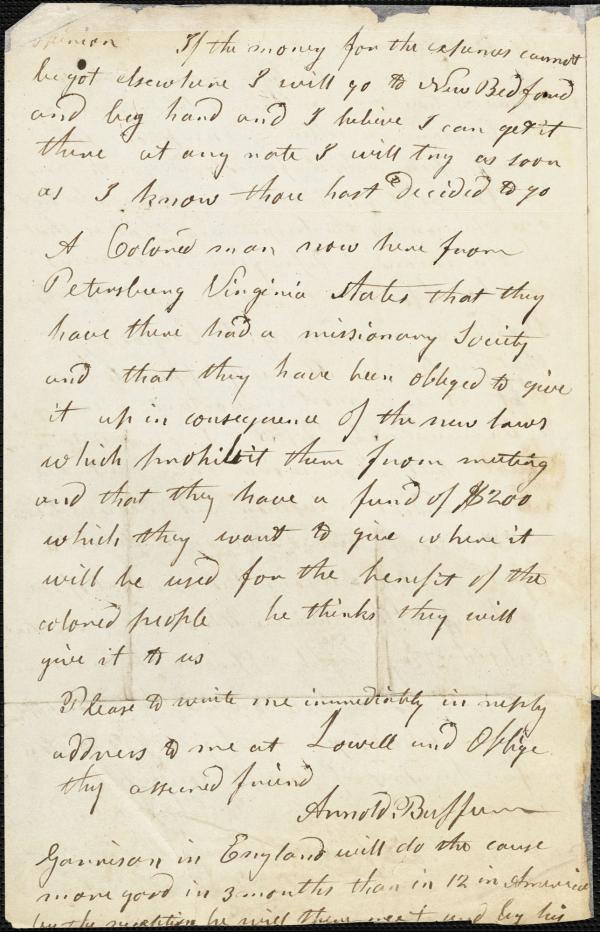 opinion If the money for the expenses cannot
be got elsewhere I will go to New Bedford
and beg hard and I believe I can get it
there at any rate I will try as soon
as I know thou hast decided to go
A Colored man now here from
Petersburg Virginia states that they
have there had a missionary Society
and that they have been obliged to give
it up in consequence of the new laws
which prohibit them from meeting
and that they have a fund of $200
which they want to give where it
will be used for the benefit of the
colored people he thinks they will
give it to us
Please to write me immediately in reply
address to me at Lowell and Oblige
thy assured friend
Arnold Buffum
Garrison in England will do the cause
more good in 3 months than in 12 in America
by the reception he will there meet and by his